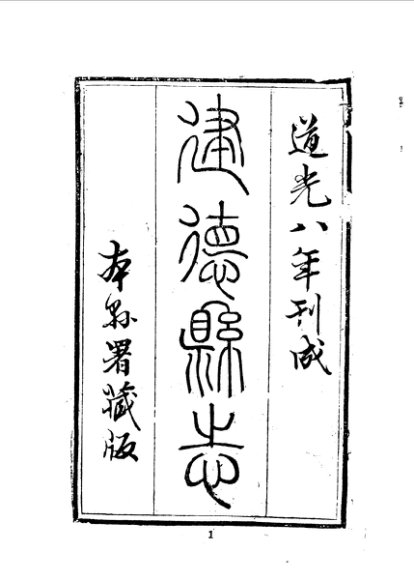 道光八年刊成
建德縣志
本縣署藏版
1